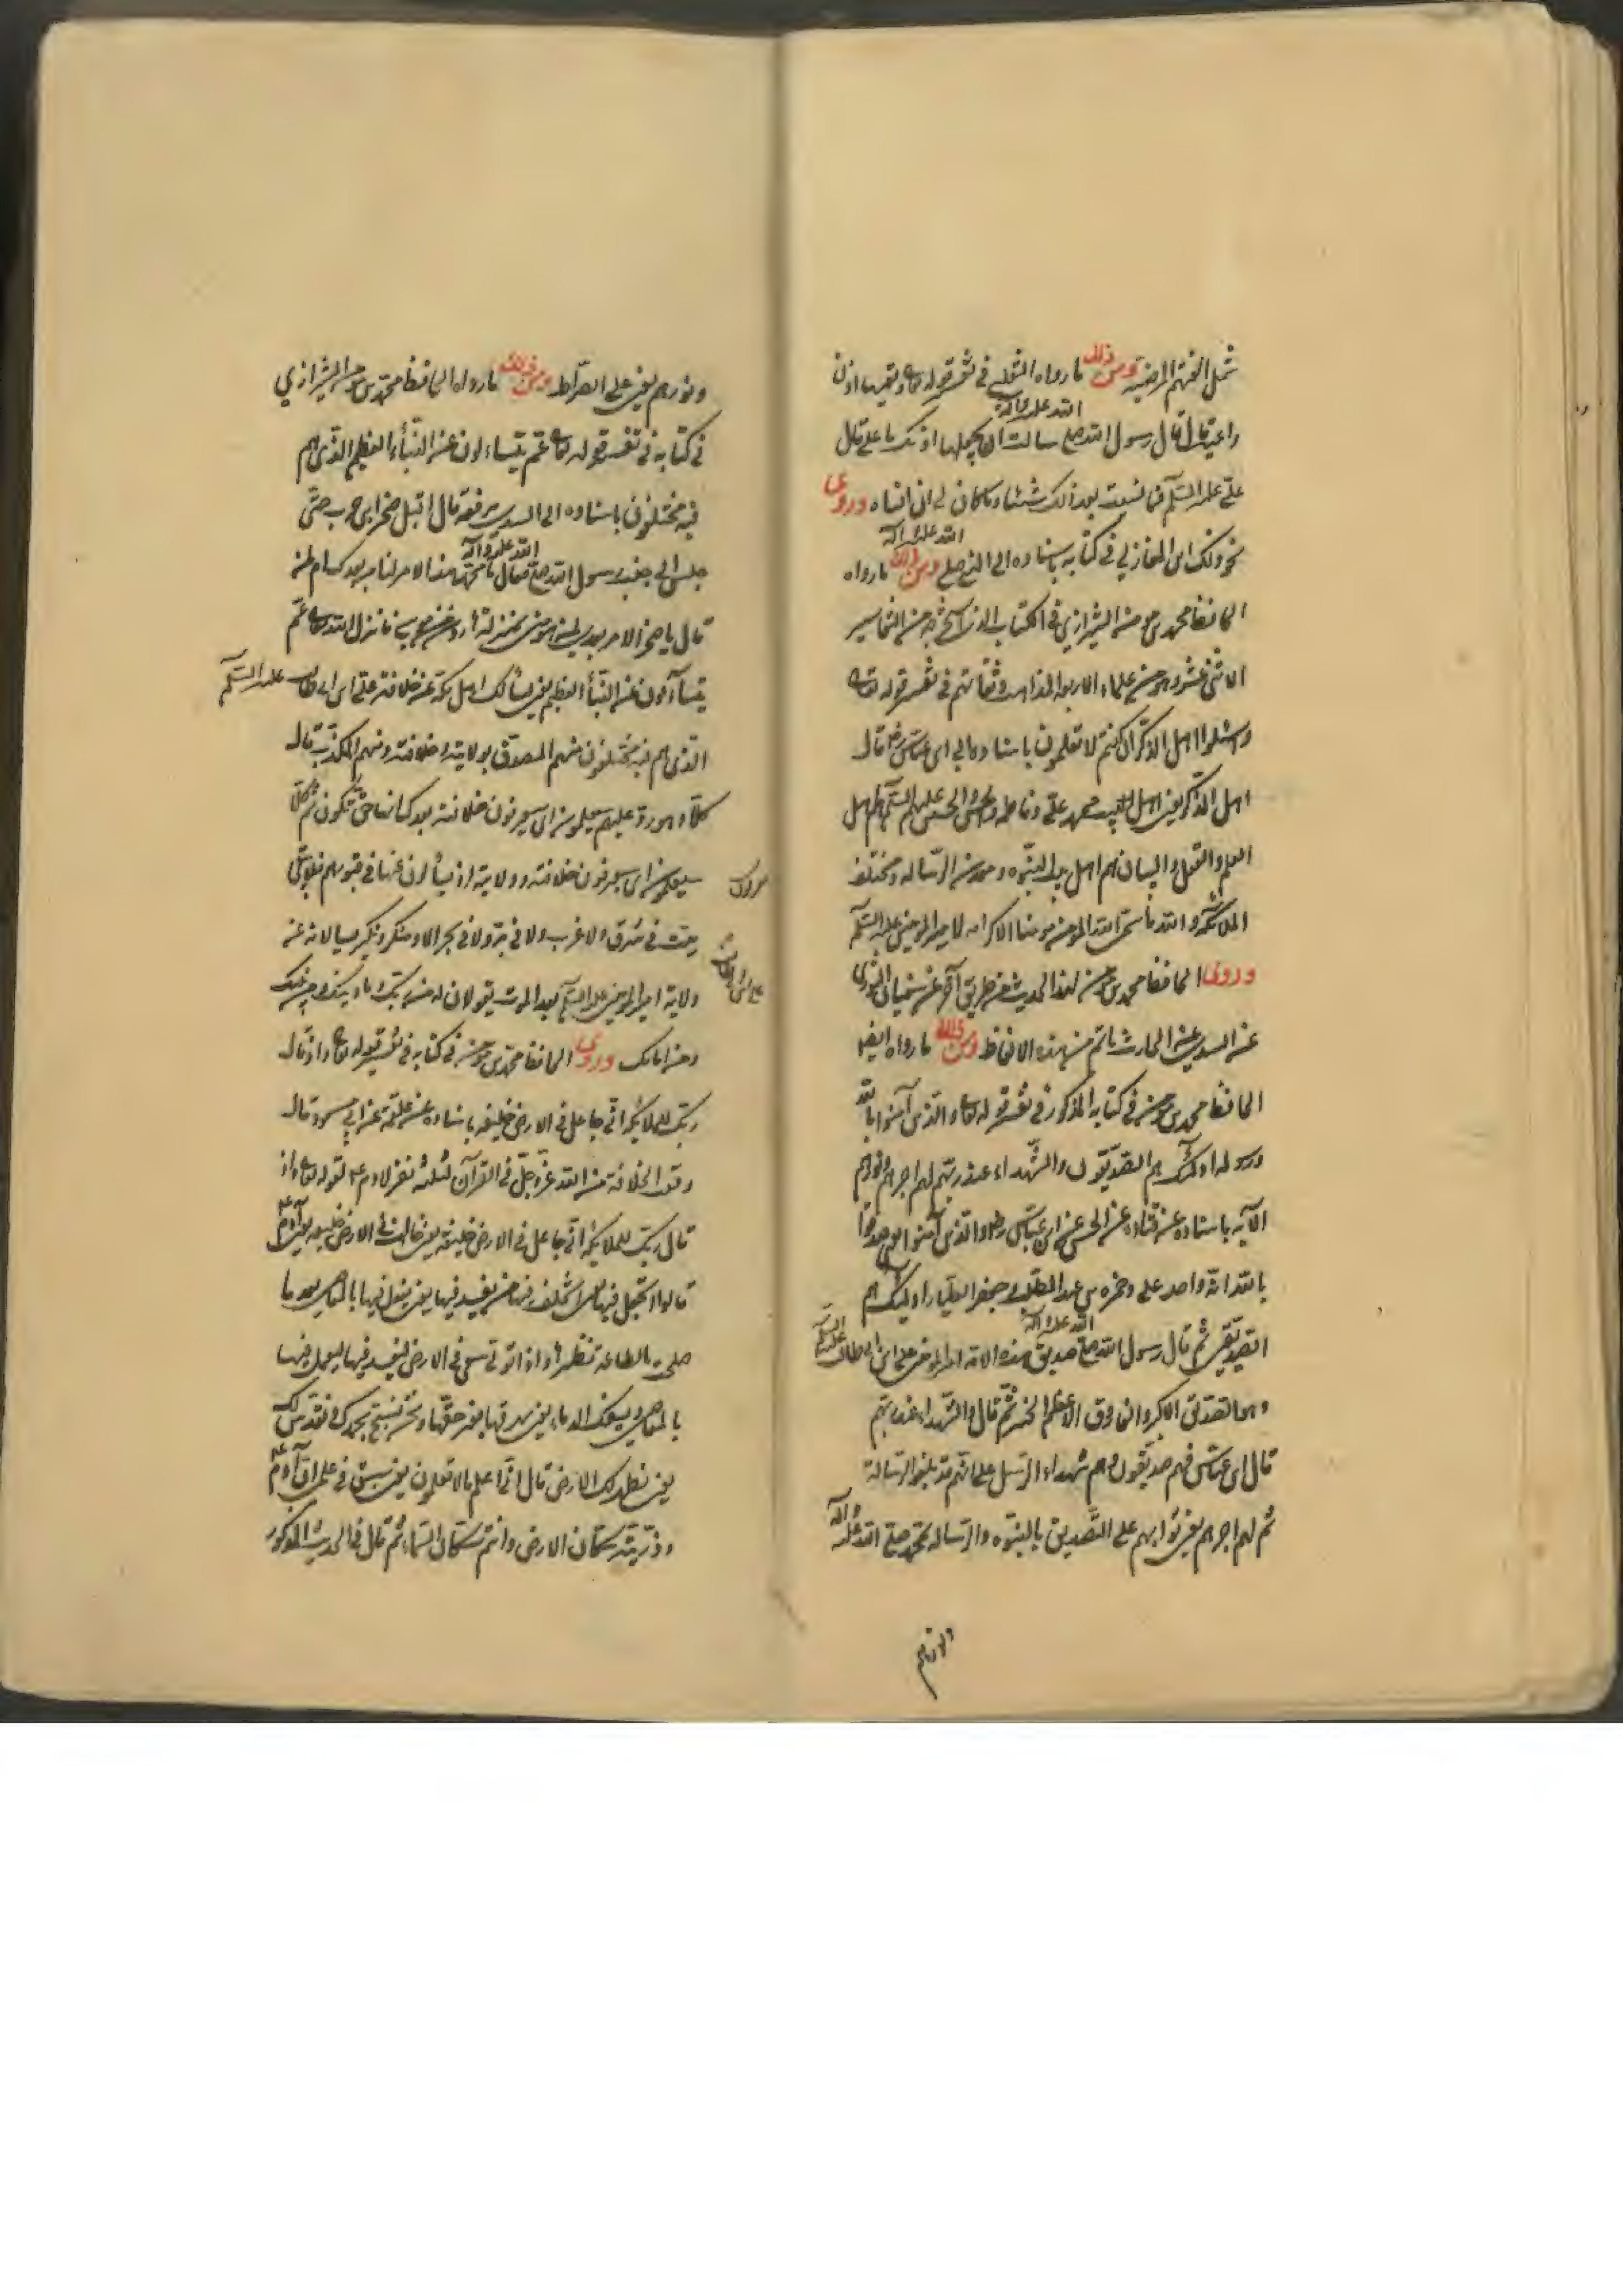 مثل الفتهم المرضيه ومن ذلك ما رواه الثعلبي في تفسير قوله تعا وتعيها اذن
واعية قال قال رسول الله صلى الله عليه وآله سالت الله ان يجعلها اذنك يا علي قال
علي عليه السلم فما نسيت بعد ذلك شيئا وما كان لي ان انساه وروى
نحو ذلك ابن المغازلي في كتابه باسناده الى النبي صلى الله عليه وآله ومن ذلك ما رواه
الحافظ محمد بن مومن الشيرازي في الكتاب الذي استخرجه من التفاسير
الاثنى عشر وهو من علماء الاربعة المذاهب وثقاتهم في تفسير قوله تعا
واسئلوا اهل الذكر ان كنتم لا تعلمون باسناده الى ابن عباس رض قال
اهل الذكر يعنى اهل البيت محمد علي وفاطمه والحسن والحسين عليهم السلم هم اهل
العلم والعقل والبيان هم اهل بيت النبوه ومعدن الرساله ومختلف
الملائكه والله ما سمى الله المومن مومنا الا كرامه لامير المومنين عليه السلم
وروى الحافظ محمد بن مومن هذا الحديث من طريق آخر عن سفيان الثورى
عن السدى عن الحارث باتم من هذه الالفاظ ومن ذلك ما رواه ايضا
الحافظ محمد بن مومن في كتابه المذكور في تفسير قوله تعا والذين آمنوا بالله
ورسوله اولئك هم الصديقون والشهداء عند ربهم لهم اجرهم ونورهم
الآيه باسناده عن قتاده عن الحسن عن ابن عباس رض والذين آمنوا يعنى صدقوا
بالله انه واحد على وحمزه بن عبد المطلب وجعفر الطيار اولئك هم
الصديقين ثم قال رسول الله صلى الله عليه وآله صديق هذه الامه امير المومنين علي ابن ابى طالب عليه السلم
وهو الصديق الاكبر والفاروق الاعظم الخبر ثم قال والشهداء عند ربهم
قال ابن عباس فهم صديقون وهم شهداء الرسل على انهم قد بلغوا الرسالة
ثم لهم اجرهم يعنى ثوابهم على التصديق بالنبوه والرساله لمحمد صلى الله عليه وآله
ونورهم
ونورهم يعنى على الصراط ومن ذلك ما رواه الحافظ محمد بن مومن الشيرازي
في كتابه في تفسير قوله تعا عم يتساءلون عن النبأ العظيم الذى هم
فيه مختلفون باسناده الى السدى يرفعه قال اقبل صخر ابن حرب حتى
جلس الى جنب رسول الله صلى الله عليه وآله فقال يا محمد هذا الامر لنا من بعدك ام لمن
قال يا صخر الامر بعدى لمن هو منى بمنزلة هارون من موسى فانزل الله تعا عم
يتساءلون عن النبأ العظيم يعنى يسألك اهل مكة عن خلافة علي ابن ابى طالب عليه السلم
الذى هم فيه مختلفون منهم المصدق بولايته وخلافته ومنهم المكذب قال
كلا وهو رد عليهم سيعلمون اى سيعرفون خلافته بعدك انها حق تكون ثم كلا
سيعلمون اى سيعرفون خلافته وولايته اذ يسألون عنها في قبورهم فلا يبقى
ميت في شرق ولا غرب ولا في بر ولا في بحر الا ومنكر ونكير يسالانه عن
ولاية امير المومنين عليه السلم بعد الموت يقولان له من ربك وما دينك ومن نبيك
ومن امامك وروى الحافظ محمد بن مومن في كتابه في تفسير قوله تعا واذ قال
ربك للملائكه انى جاعل في الارض خليفه باسناده عن علقمة عن ابن مسعود قال
وقعت الخلافة من الله عز وجل في القرآن لثلثه نفر لادم ع لقوله تعا واذ
قال ربك للملائكه انى جاعل في الارض خليفه يعنى خالق في الارض خليفه يعنى آدم ع
قالوا اتجعل فيها من يفسد فيها يعنى بالمعاصى بعد ما
صلحت بالطاعة نظيرها واذا تولى سعى في الارض ليفسد فيها ليعمل فيها
بالمعاصى ويسفك الدماء يعنى يهرقها بغير حقها ونحن نسبح بحمدك ونقدس لك
يعنى نطهر لك الارض قال انى اعلم ما لا تعلمون يعنى سبق في علمى ان آدم ع
وذريته سكان الارض وانتم سكان السماء ثم قال في الحديث المذكور